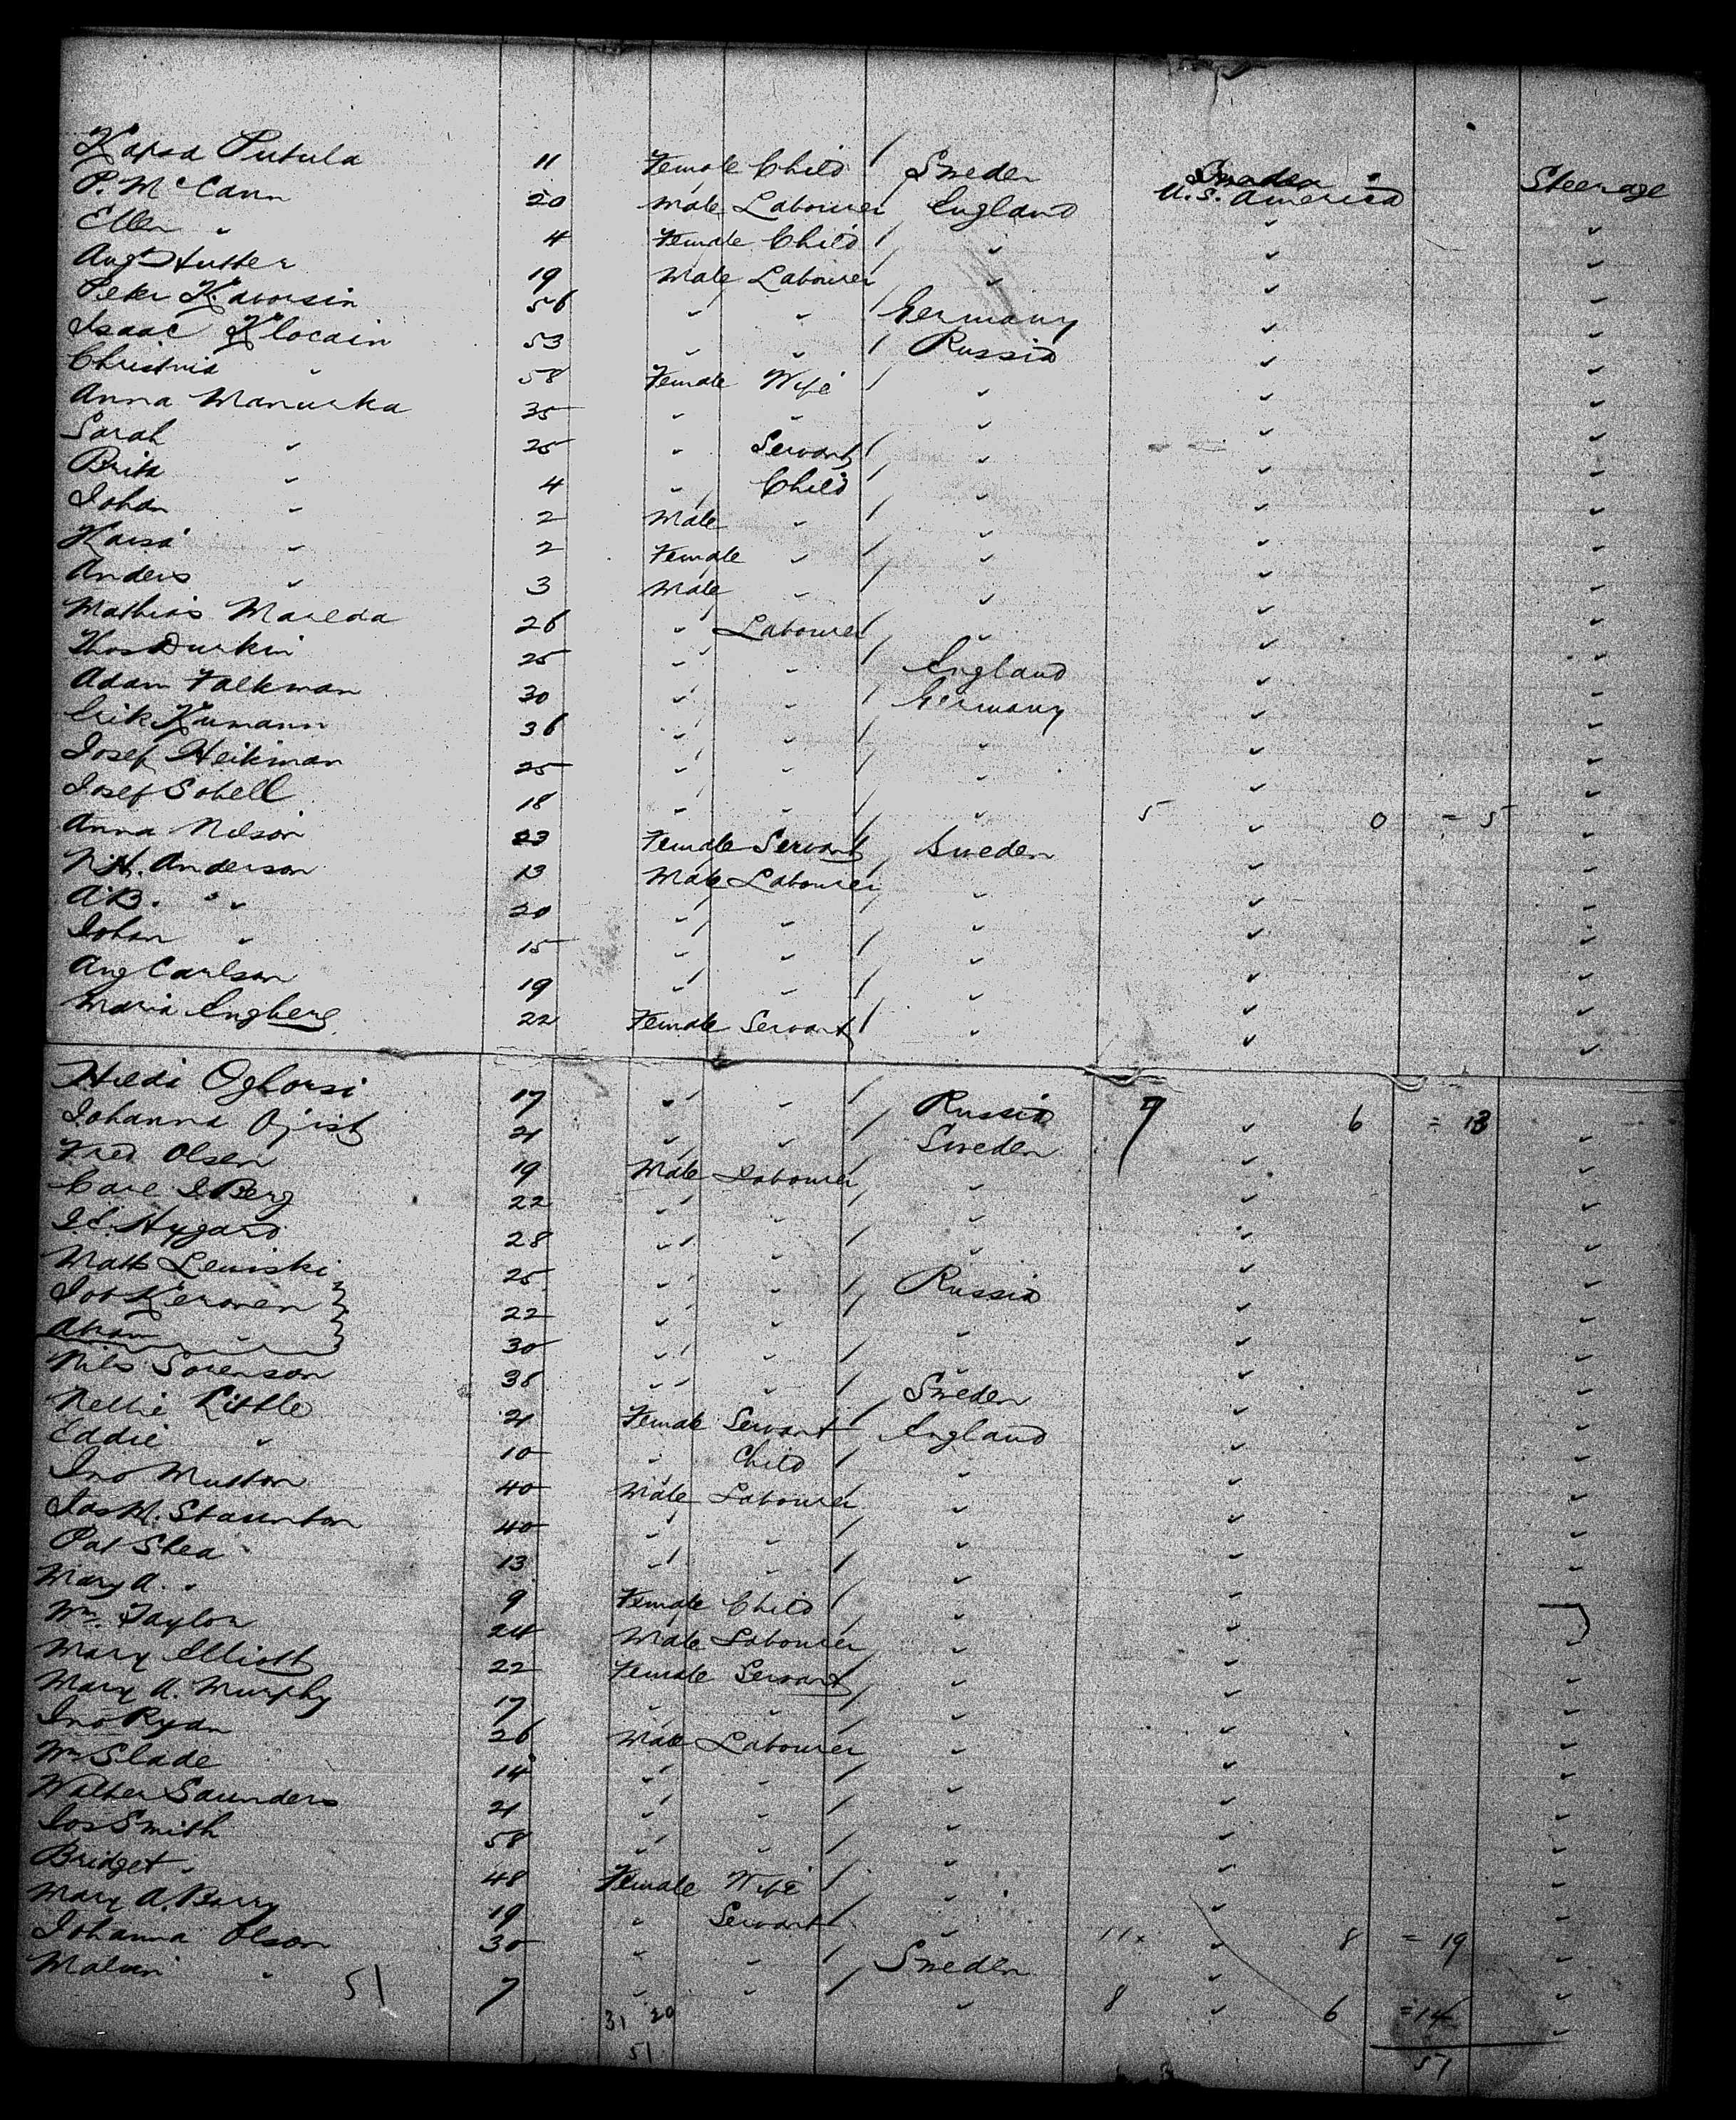 Kajsa Putula 11 Female Child / Sweden Sweden Steerage
P. McCann 20 Male Labourer / England U.S. America ✓
Ellen " 4 Female Child / " " "
Aug Hutter 19 Male Labourer / " " "
Peter Kavorsin 56 " " / Germany " "
Isaac Klocain 53 " " / Russia " "
Christina " 58 Female Wife / " " "
Anna Manurka 35 " " " " "
Sarah " 25 " Servant / " " "
Brita " 4 " Child / " " "
Johan " 2 Male " / " " "
Kaisa " 2 Female " / " " "
Anders " 3 Male " / " " "
Mathias Mareda 26 " Labourer / " " "
Thos Durkin 25 " " / England " "
Adam Falkman 30 " " / Germany " "
Erik Kumann 36 " " / " " "
Josef Heikman 25 " " / " " "
Josef Sobell 18 " " / " 5 " 0 = 5 "
Anna Nelson 23 Female Servant / Sweden " "
N.H. Anderson 13 Male Labourer / " " "
A.B. " 20 " " / " " "
Johan " 15 " " / " " "
Aug Carlson 19 " " / " " "
Maria Engberg 22 Female Servant / " " "
Hilda Oghorsi 17 " " / Russia 7 " 6 = 13 "
Johanna Ojist 21 " " / Sweden " "
Fred Olsen 19 Male Labourer / " " "
Carl J Berg 22 " " / " " "
J.E. Hygard 28 " " / " " "
Matts Lewiski 25 " " / Russia " "
Job Keronen 22 " " / " " "
" 30 " " / " " "
Nils Sorenson 38 " " / Sweden " "
Nellie Little 21 Female Servant / England " "
Eddie " 10 " Child / " " "
Jno Mutton 40 Male Labourer / " " "
Jas M. Staunton 40 " " / " " "
Pat Shea 13 " " / " " "
Mary A. " 9 Female Child / " " "
Wm Taylor 24 Male Labourer / " " "
Mary Elliott 22 Female Servant / " " "
Mary A. Murphy 17 " " / " " "
Jno Ryan 26 Male Labourer / " " "
Wm Slade 14 " " / " " "
Walter Saunders 21 " " / " " "
Jos Smith 58 " " / " " "
Bridget " 48 Female Wife / " " "
Mary A. Barry 19 " Servant / " 11 " 8 = 19 "
Johanna Olson 30 " " / Sweden " "
Malvin " 51 7 " " / " 8 " 6 = 14 "
31 20 51
51